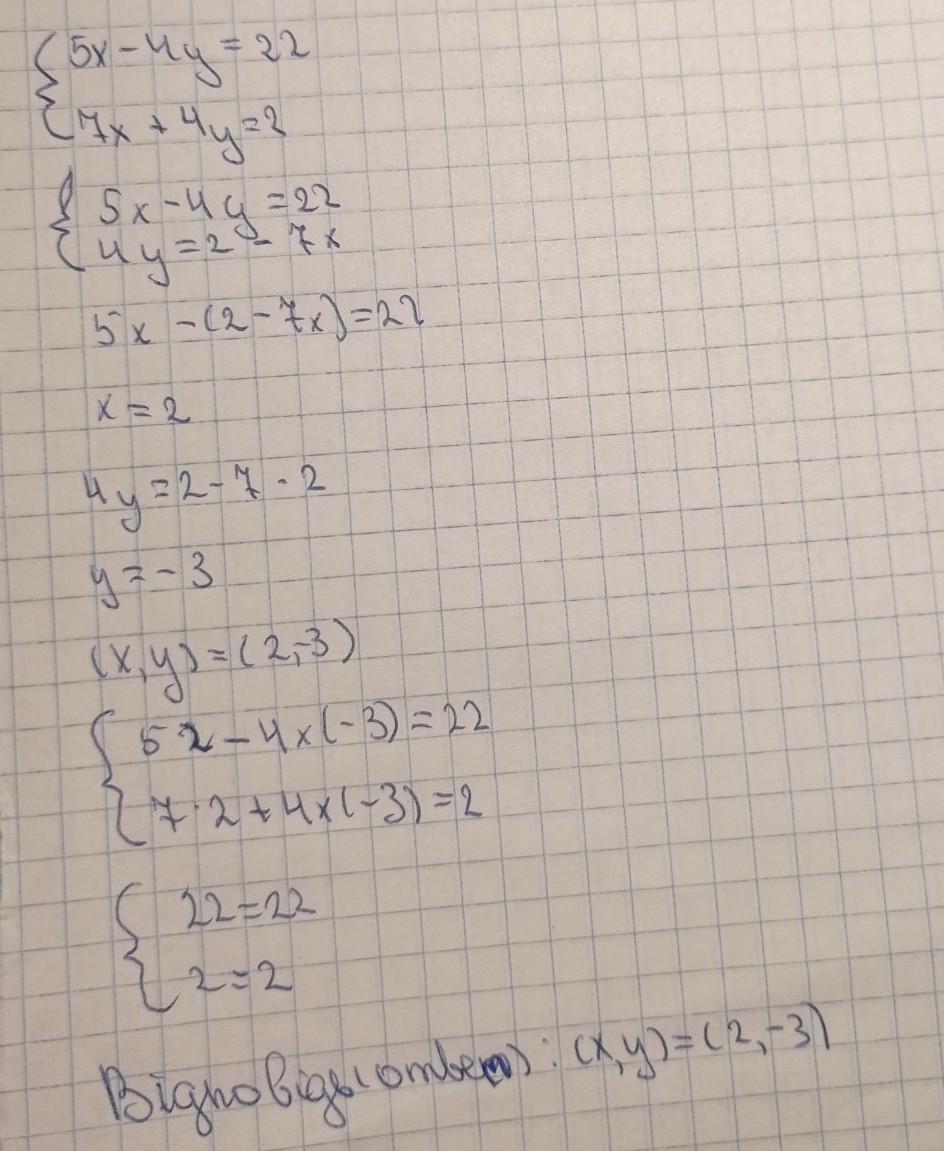 {5x-4y=22
{7x+4y=2
{5x-4y=22
{4y=2-7x
5x-(2-7x)=22
x=2
4y=2-7·2
y=-3
(x,y)=(2,-3)
{5 2-4×(-3)=22
{7·2+4×(-3)=2
{22=22
{2=2
Відповідь(ответ): (x,y)=(2,-3)